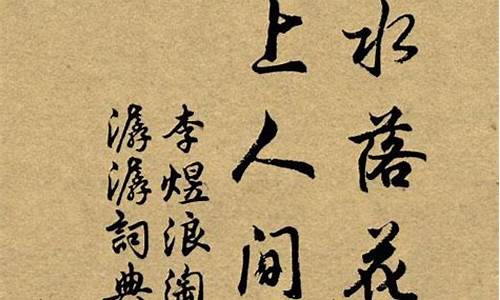 水落花
上人间
李煜浪淘
潺潺词典